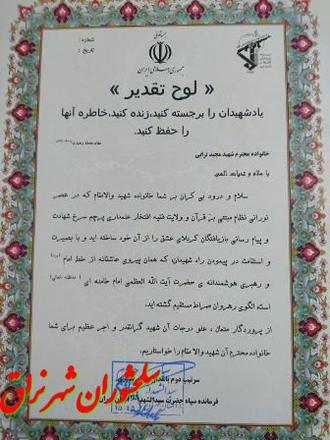 بسمه تعالی
شماره :
تاریخ :
جمهوری اسلامی ایران
« لوح تقدیر »
یادشهیدان را برجسته کنید،زنده کنید،خاطره آنها
را حفظ کنید.
مقام معظم رهبری
خانواده محترم شهید مجید ترابی
با سلام و تحیات الهی
سلام و درود بی کران بر شما خانواده شهید والامقام که در عصر
نورانی نظام مبتنی بر قرآن و ولایت فقیه افتخار علمداری پرچم سرخ شهادت
و پیام رسانی بازیافتگان کربلای عشق را از آن خود ساخته اید و با بصیرت
و استقامت در پیمودن راه شهیدان، که همان پیروی عاشقانه از خط امام
و رهبری هوشمندانه ی حضرت آیت الله العظمی امام خامنه ای
اسوه الگوی رهروان صراط مستقیم گشته اید.
از پروردگار متعال ، علو درجات آن شهید گرانقدر و اجر عظیم برای شما
خانواده محترم آن شهید والامقام را خواستاریم.
سرتیپ دوم پاسدار
فرمانده سپاه حضرت سیدالشهداء
سلحشوران شهر نراق